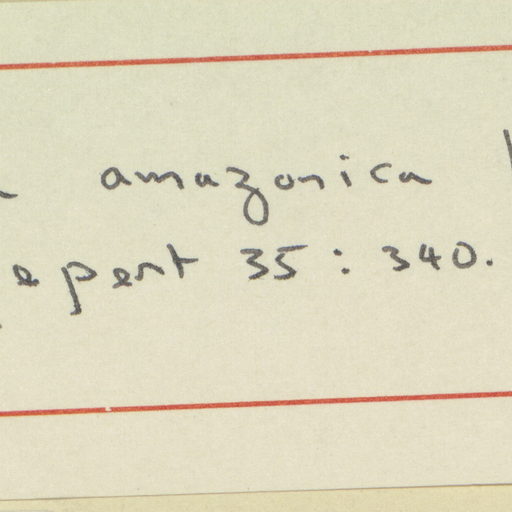 amazonica
epert 35 : 340.